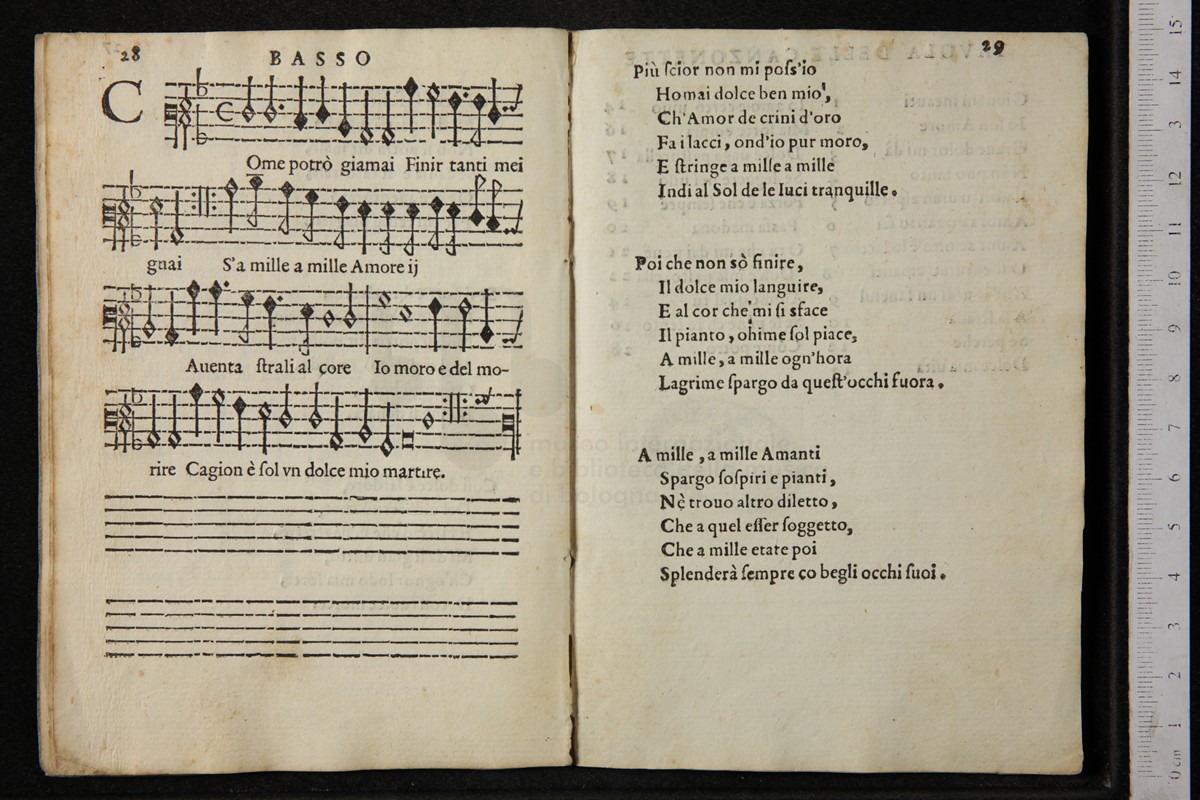 28
BASSO
C
Ome potrò giamai Finir tanti mei
guai S'a mille a mille Amore ij
Auenta ſtrali al core Io moro e del mo-
rire Cagion è ſol vn dolce mio martire.
29
Più ſcior non mi poſs'io
Homai dolce ben mio',
Ch'Amor de crini d'oro
Fa i lacci, ond'io pur moro,
E ſtringe a mille a mille
Indi al Sol de le luci tranquille.
Poi che non sò finire,
Il dolce mio languire,
E al cor che mi ſi sface
Il pianto, ohime ſol piace,
A mille, a mille ogn'hora
Lagrime ſpargo da queſt'occhi fuora.
A mille, a mille Amanti
Spargo ſoſpiri e pianti,
Nè trouo altro diletto,
Che a quel eſſer ſoggetto,
Che a mille etate poi
Splenderà ſempre co begli occhi ſuoi.
museo internazionale
e biblioteca della musica
di bologna
15
14
13
12
11
10
9
8
7
6
5
4
3
2
1
0 cm